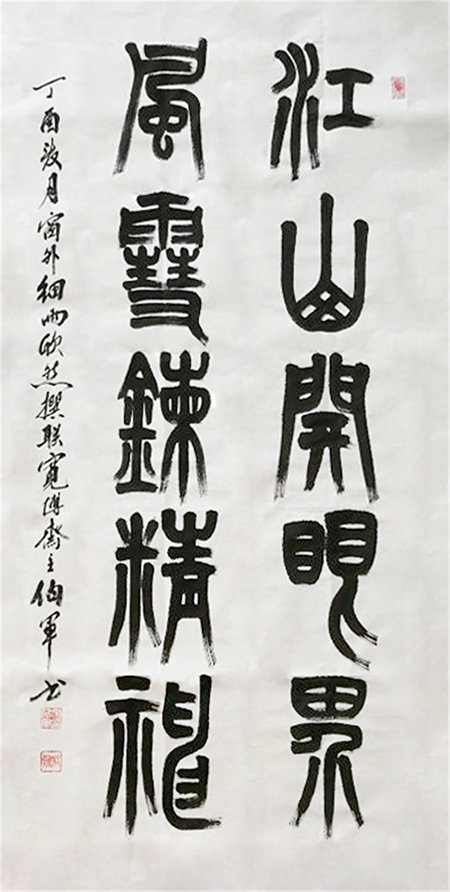 江山開眼界
風雪鍊精神
丁酉月窗外細雨欣然撰联寬博齋主伯軍书